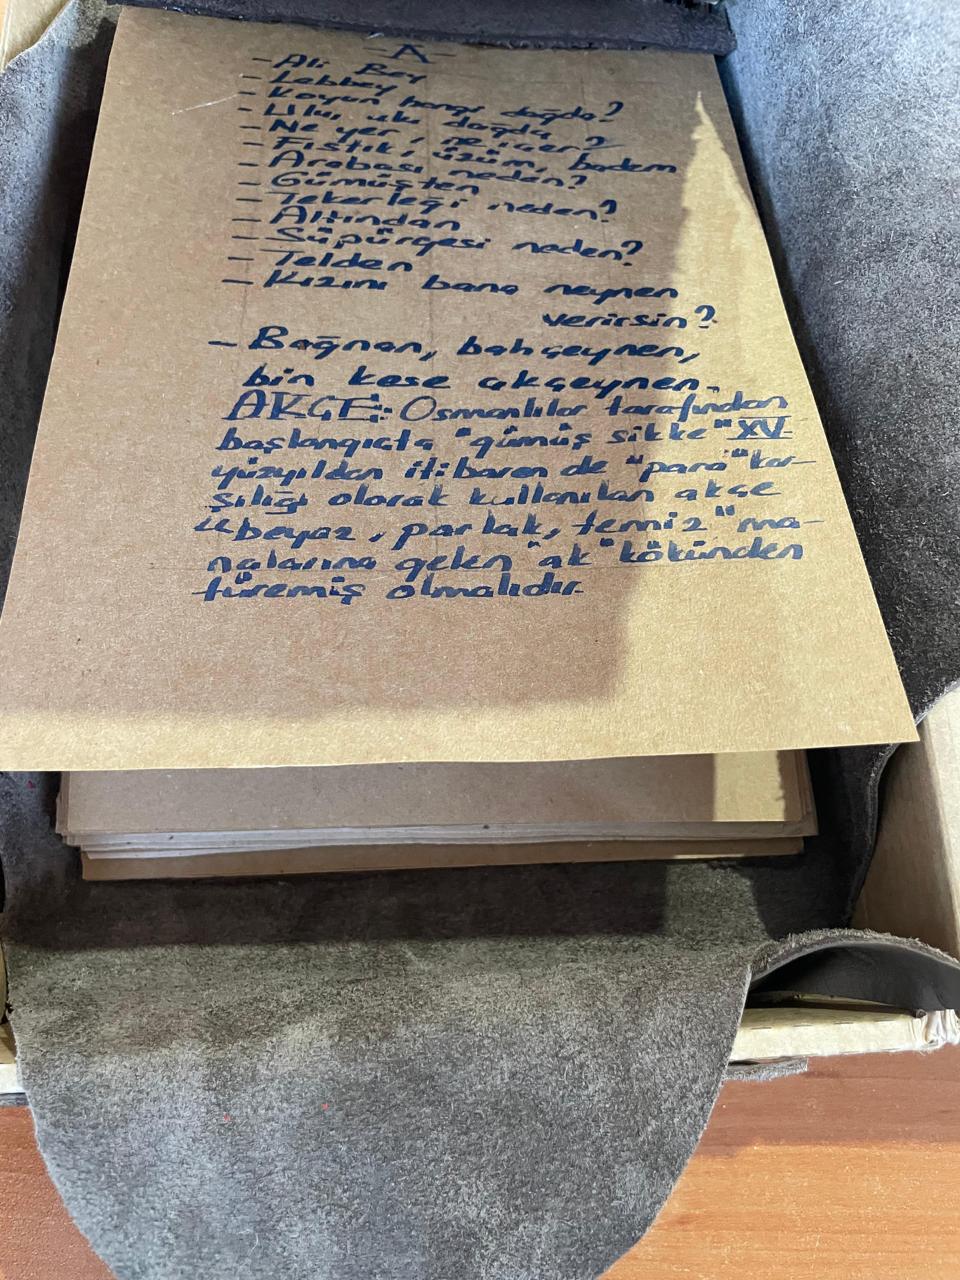 - A -
- Ali Bey
- Lebbey
- Koyun hangi dağda?
- Ulu, ulu dağda
- Ne yer, ne içer?
- Fıstık, üzüm, badem
- Arabası neden?
- Gümüşten
- Tekerleği neden?
- Altından
- Süpürgesi neden?
- Telden
- Kızını bana neynen
verirsin?
- Bağnan, bahçeynen,
bin kese akçeynen.
AKÇE: Osmanlılar tarafından
başlangıçta "gümüş sikke" XV.
yüzyıldan itibaren de "para" kar-
şılığı olarak kullanılan akçe
"beyaz, parlak, temiz" ma-
nalarına gelen "ak" kökünden
türemiş olmalıdır.